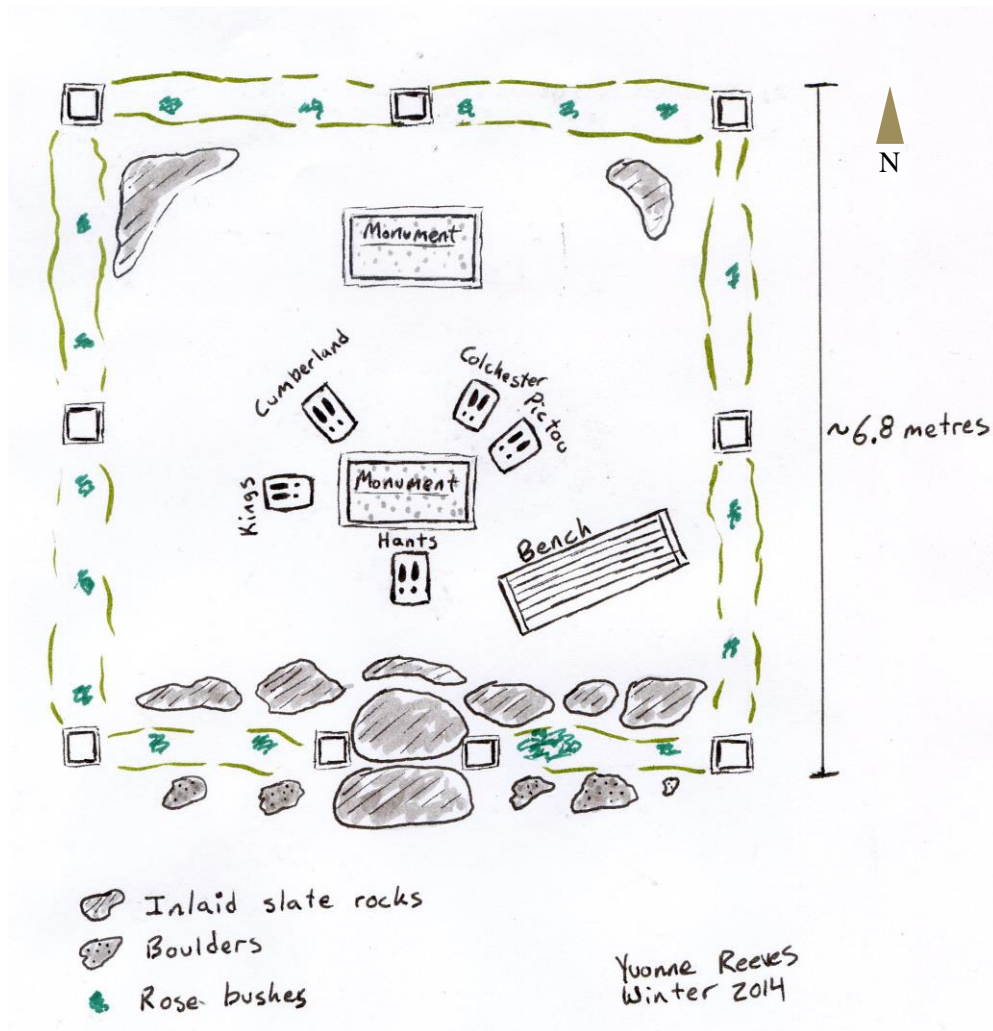 N
Monument
Cumberland
Colchester
Pictou
~6.8 metres
Kings
Monument
Hants
Bench
Inlaid slate rocks
Boulders
Rose bushes
Yvonne Reeves
Winter 2014